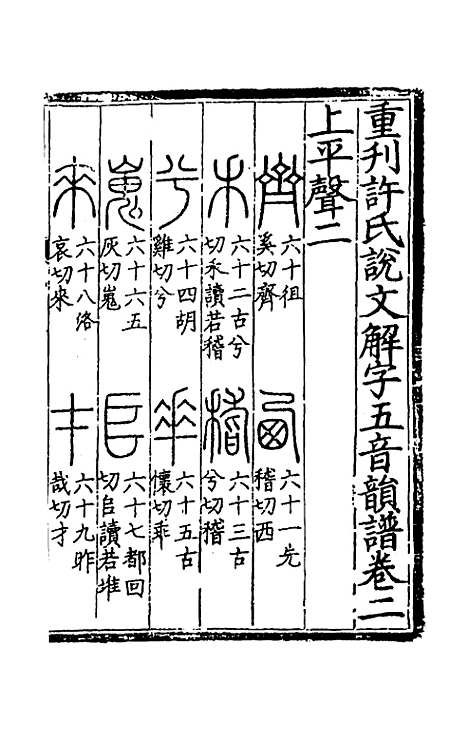 重刊許氏說文解字五音韻譜卷二
上平聲二
齊 六十徂奚切齊
西 六十一先稽切西
禾 六十二古兮切禾讀若稽
稽 六十三古兮切稽
兮 六十四胡雞切兮
𠌶 六十五古懷切乖
嵬 六十六五灰切嵬
𠂤 六十七都回切𠂤讀若堆
來 六十八洛哀切來
才 六十九昨哉切才